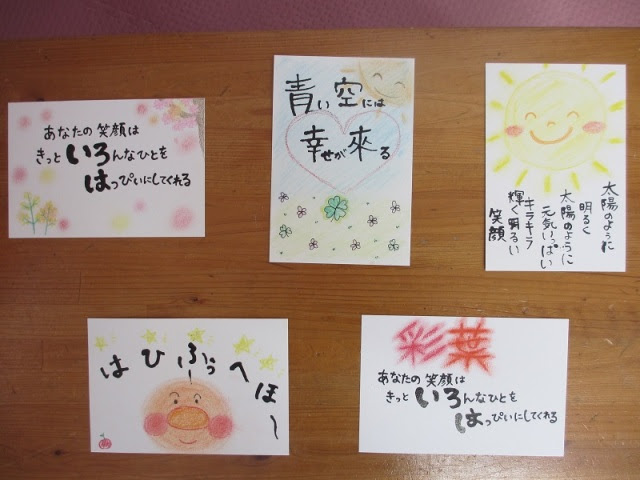 あなたの笑顔は
きっといろんなひとを
はっぴいにしてくれる
青い空には
幸せが來る
太陽のように
明るく
太陽のように
元気いっぱい
キラキラ
輝く明るい
笑顔
はひふっへほ〜
彩葉
あなたの笑顔は
きっといろんなひとを
はっぴいにしてくれる